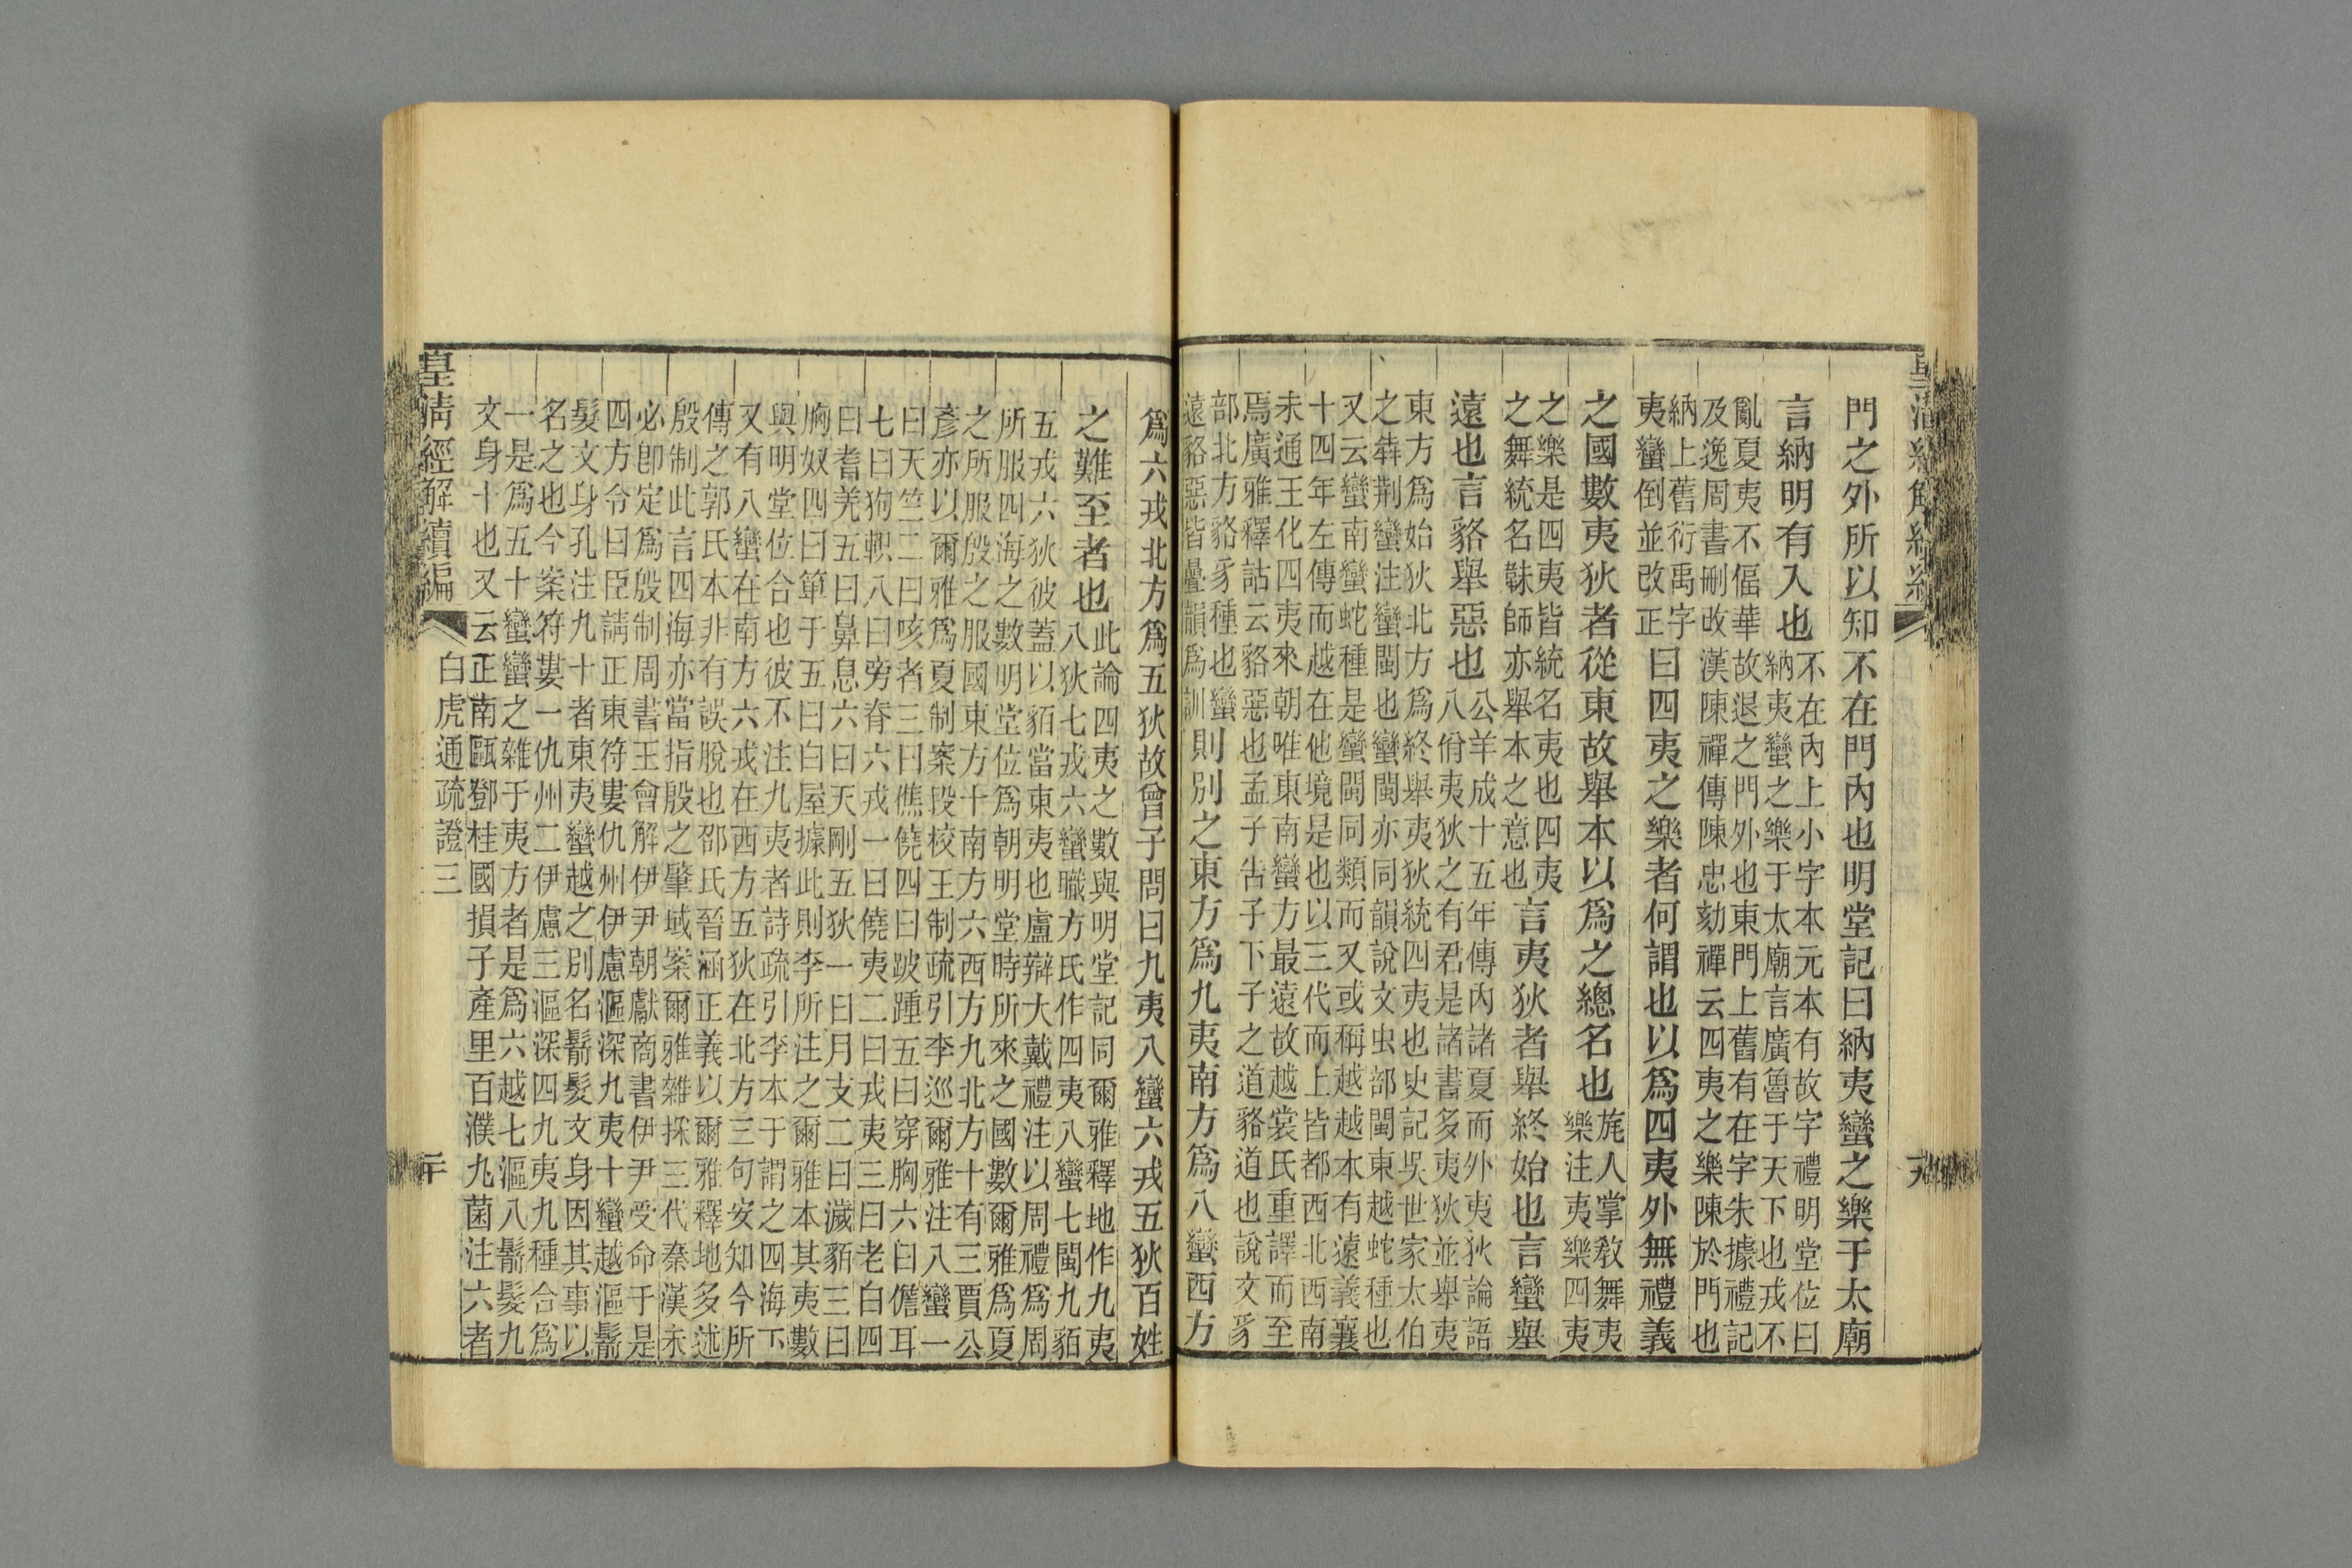 門之外所以知不在門內也明堂記曰納夷蠻之樂于太廟
言納明有入也
不在內上小字本元本有故字禮明堂位曰
納夷蠻之樂于太廟言廣魯于天下也戎不
亂夏夷不偪華故退之門外也東門上舊有在字朱據禮記
及逸周書刪改漢陳禪傳陳忠劾禪云四夷之樂陳於門也
納上舊衍禹字
夷蠻倒並改正
曰四夷之樂者何謂也以爲四夷外無禮義
之國數夷狄者從東故舉本以爲之總名也
旄人掌敎舞夷
樂注夷樂四夷
之樂是四夷皆統名夷也四夷
之舞統名韎師亦舉本之意也
言夷狄者舉終始也言蠻舉
遠也言貉舉惡也
公羊成十五年傳內諸夏而外夷狄論語
八佾夷狄之有君是諸書多夷狄並舉夷
東方爲始狄北方爲終舉夷狄統四夷也史記吳世家太伯
之犇荆蠻注蠻閩也蠻閩亦同韻說文虫部閩東越蛇種也
又云蠻南蠻蛇種是蠻閩同類而又或稱越越本有遠義襄
十四年左傳而越在他境是也以三代而上皆都西北西南
未通王化四夷來朝唯東南蠻方最遠故越裳氏重譯而至
焉廣雅釋詁云貉惡也孟子告子下子之道貉道也說文豸
部北方貉豸種也蠻
遠貉惡皆疊韻爲訓
則別之東方爲九夷南方爲八蠻西方
爲六戎北方爲五狄故曾子問曰九夷八蠻六戎五狄百姓
之難至者也
此論四夷之數與明堂記同爾雅釋地作九夷
八狄七戎六蠻職方氏作四夷八蠻七閩九貊
五戎六狄彼蓋以貊當東夷也盧辯大戴禮注以周禮爲周
所服四海之數明堂位爲朝明堂時所來之國數爾雅爲夏
之所服殷之服國東方十南方六西方九北方十有三賈公
彥亦以爾雅爲夏制案段校王制疏引李巡爾雅注八蠻一
曰天竺二曰咳者三曰僬僥四曰跛踵五曰穿胸六曰儋耳
七曰狗軹八曰旁脊六戎一曰僥夷二曰戎夷三曰老白四
曰耆羌五曰鼻息六曰天剛五狄一曰月支二曰濊貊三曰
胸奴四曰單于五曰白屋據此則李所注之爾雅本其夷數
與明堂位合也彼不注九夷者詩疏引李本于謂之四海下
又有八蠻在南方六戎在西方五狄在北方三句安知今所
傳之郭氏本非有誤脫也邵氏晉涵正義以爾雅釋地多述
殷制此言四海亦當指殷之肇域案爾雅雜採三代秦漢未
必卽定爲殷制周書王會解伊尹朝獻商書伊尹受命于是
四方令曰臣請正東符婁仇州伊慮漚深九夷十蠻越漚鬋
髮文身孔注九十者東夷蠻越之別名鬋髮文身因其事以
名之也今案符婁一仇州二伊慮三漚深四九夷九種合爲
一是爲五十蠻蠻之雜于夷方者是爲六越七漚八鬋髮九
文身十也又云正南甌鄧桂國損子產里百濮九菌注六者
皇清經解續編 白虎通疏證三 二十